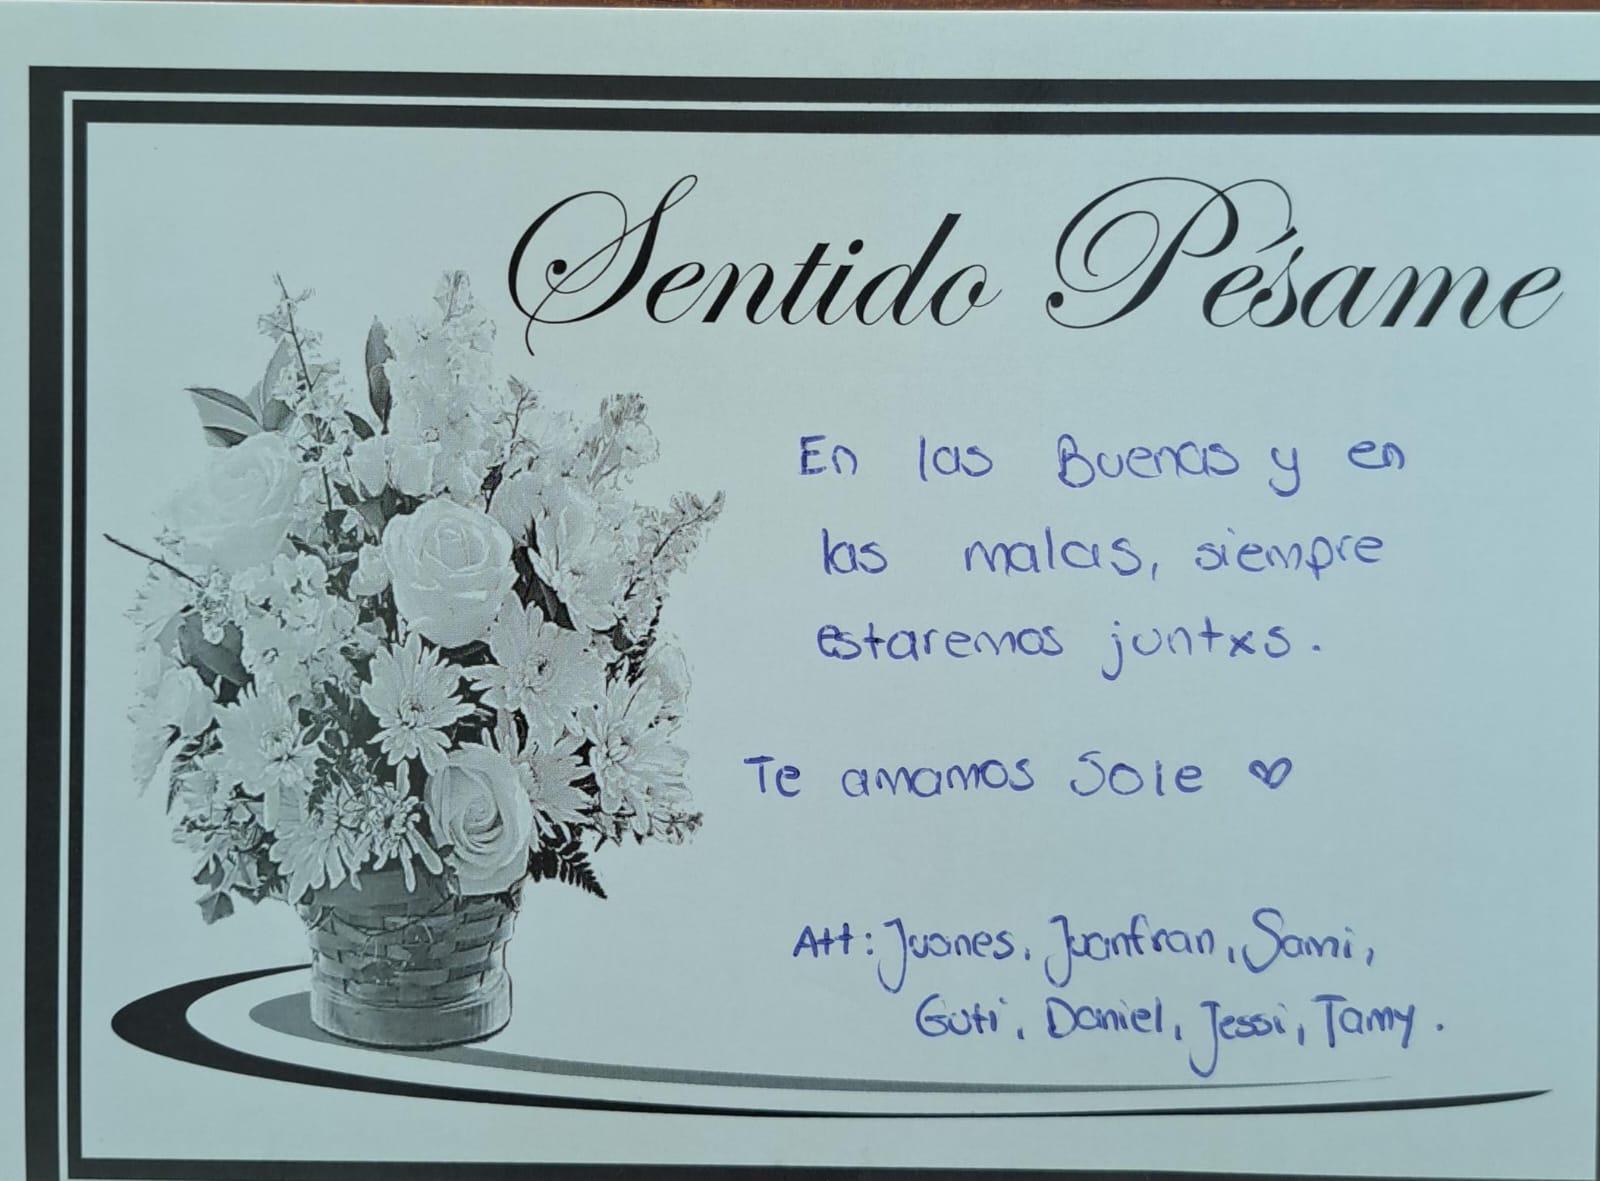 Sentido Pésame
En las Buenas y en
las malas, siempre
estaremos juntxs.
Te amamos Sole ♡
Att: Juanes, Juanfran, Sami,
Guti, Daniel, Jessi, Tamy.